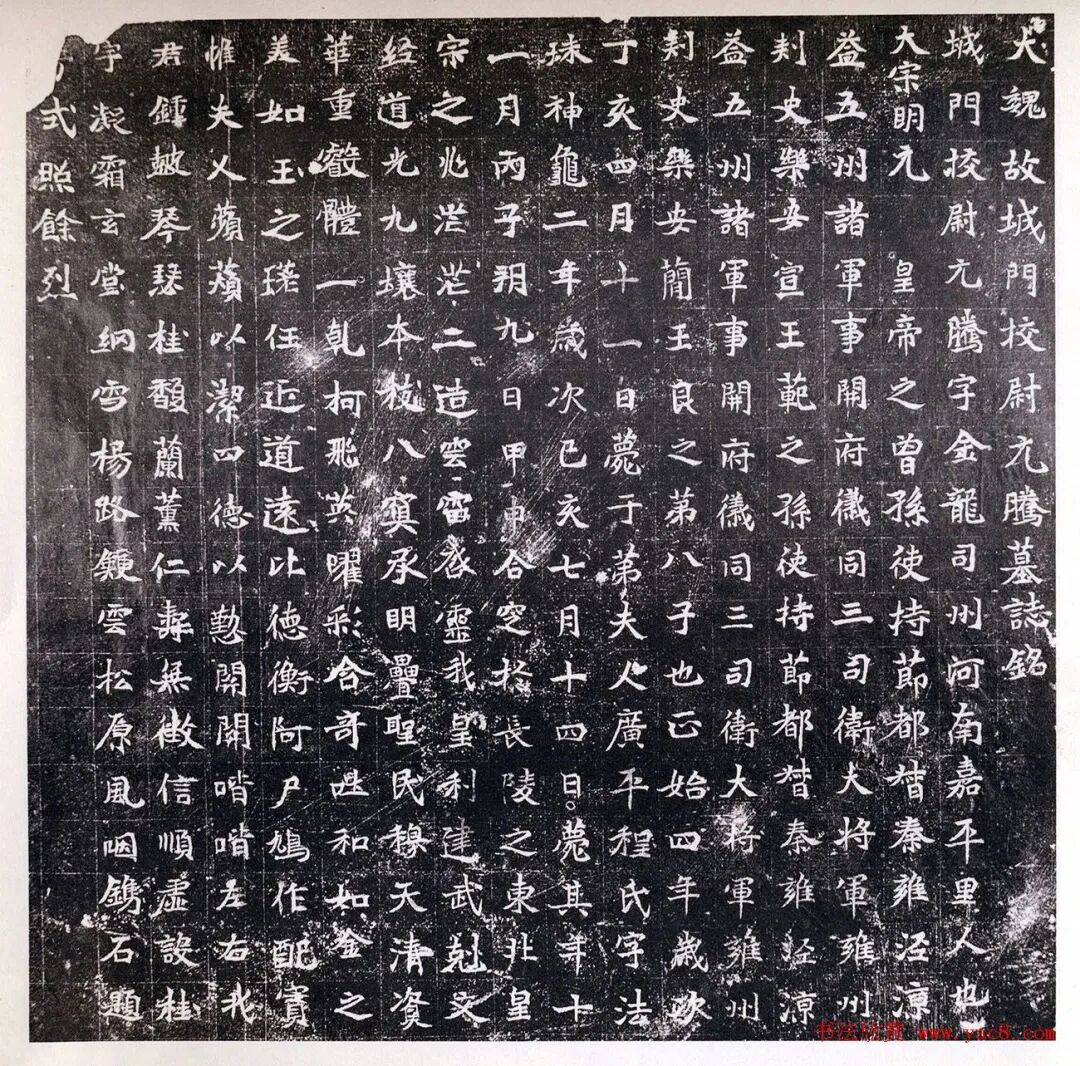 大魏故城門校尉元騰墓誌銘
城門校尉元騰字金龍司州河南嘉平里人也
太宗明元 皇帝之曾孫使持節都督秦雍涇涼
益五州諸軍事開府儀同三司衛大將軍雍州
刾史樂安宣王範之孫使持節都督秦雍涇涼
益五州諸軍事開府儀同三司衛大將軍雍州
刾史樂安蕳王良之第八子也正始四年歲次
丁亥四月十一日薨于第夫人廣平程氏字法
珠神龜二年歲次己亥七月十四日薨其年十
一月丙子朔九日甲申合窆於長陵之東北皇
宗之兆茫茫二造雲雷啓靈我皇利建武剋文
經道光九壤本枝八寘承明疊聖民穆天清資
華重體一乹柯飛英曜彩含奇挹和如金之
美如玉之瑳任近道遠比德衡阿尸鳩作配寔
惟夫人蘋蘩以潔四德以懃開開喈喈左右我
君鍾皷琴瑟桂馥蘭薰仁無徵信順虛設桂
宇凝霜玄堂網雪楊路雲松原風咽鐫石題
式照餘烈
书法欣赏 www.yac8.com